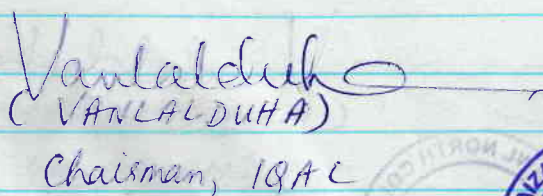 Vanlalduha
(VANLALDUHA)
Chairman, IQAC